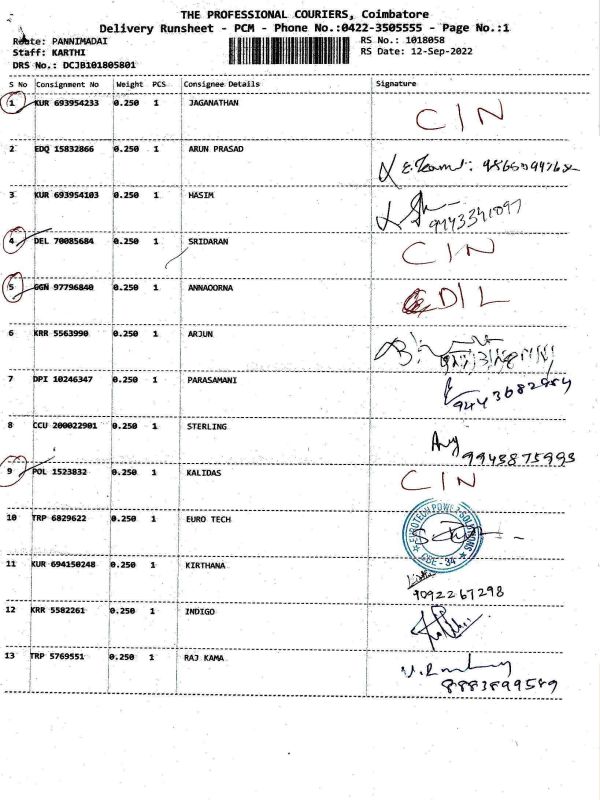 THE PROFESSIONAL COURIERS, Coimbatore
Delivery Runsheet - PCM - Phone No.:0422-3505555 - Page No.:1
Route: PANNIMADAI
RS No.: 1018058
Staff: KARTHI
RS Date: 12-Sep-2022
DRS No.: DCJB101805801
S No Consignment No Weight PCS Consignee Details Signature
1 KUR 693954233 0.250 1 JAGANATHAN CIN
2 EDQ 15832866 0.250 1 ARUN PRASAD
3 KUR 693954103 0.250 1 HASIM
9443341097
4 DEL 70085684 0.250 1 SRIDARAN CIN
5 GGN 97796840 0.250 1 ANNAOORNA D/L
6 KRR 5563990 0.250 1 ARJUN
7 DPI 10246347 0.250 1 PARASAMANI
8 CCU 200022901 0.250 1 STERLING
9943875993
9 POL 1523832 0.250 1 KALIDAS CIN
10 TRP 6829622 0.250 1 EURO TECH
EUROTECH POWER SOLUTIONS
CBE - 34
11 KUR 694150248 0.250 1 KIRTHANA
9092267298
12 KRR 5582261 0.250 1 INDIGO
13 TRP 5769551 0.250 1 RAJ KAMA
8883899589